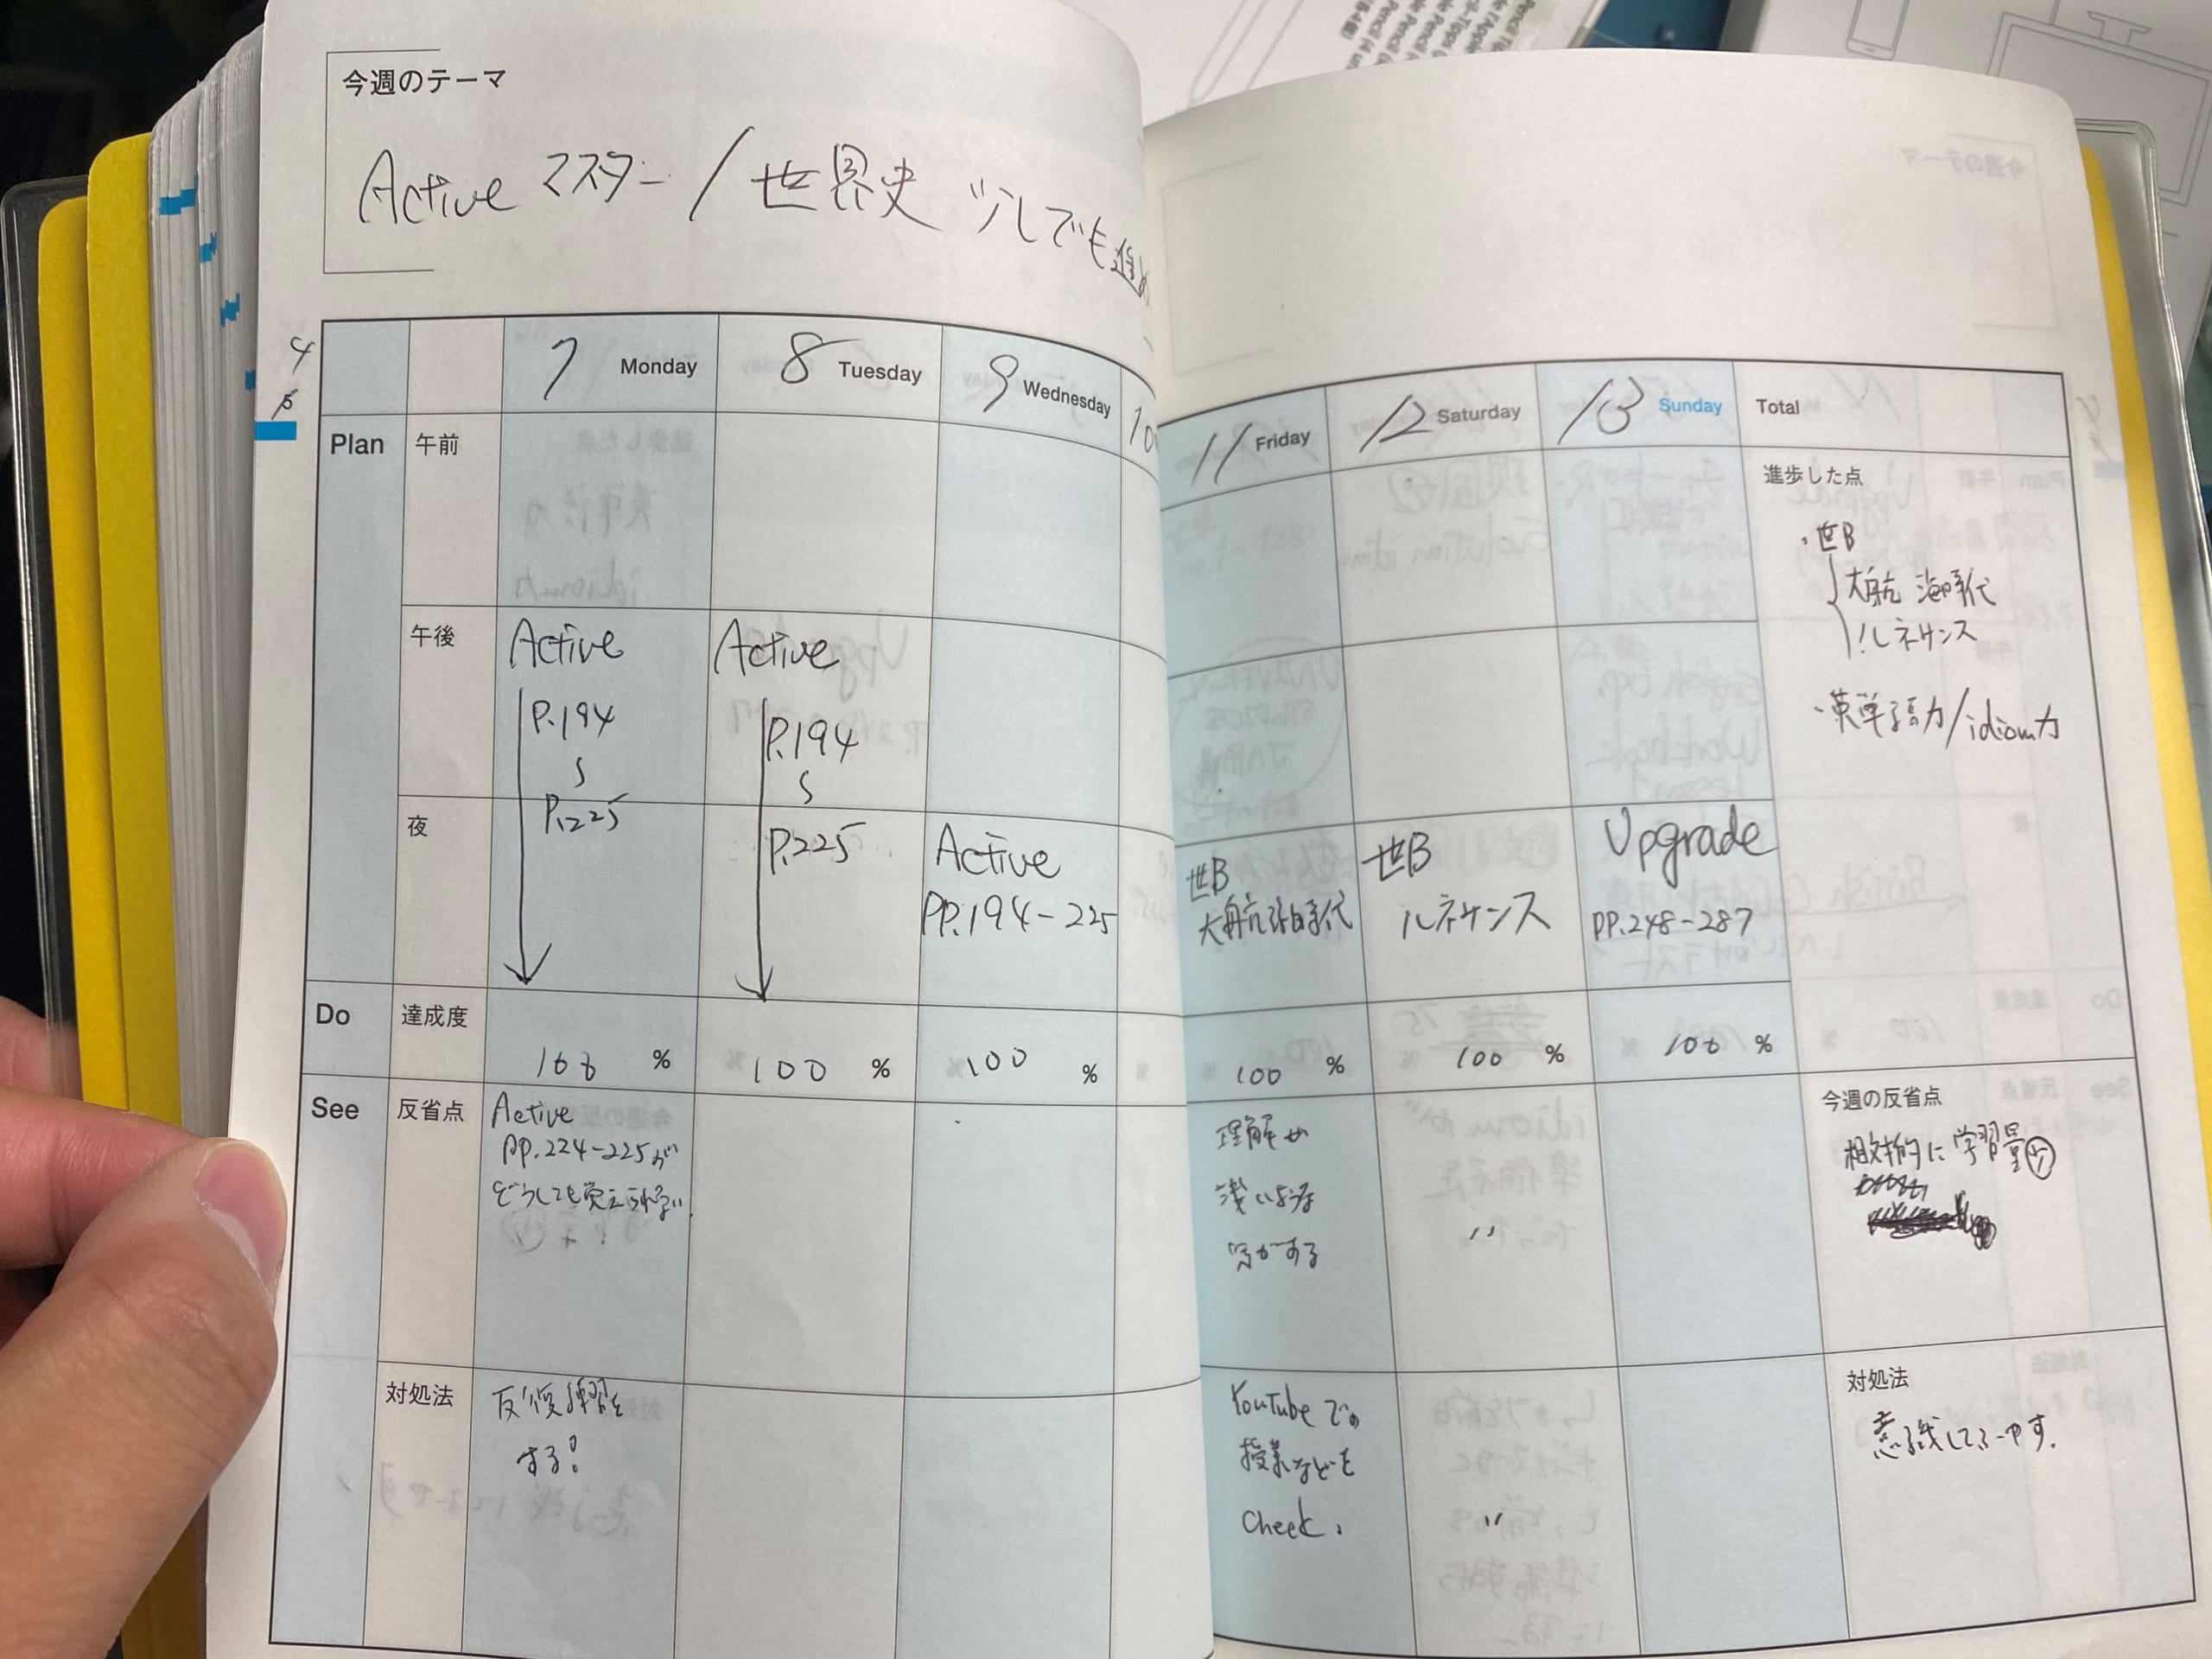 今週のテーマ
Active マスター / 世界史 少しでも進め
4
7 Monday
8 Tuesday
9 Wednesday
10
11 Friday
12 Saturday
13 Sunday
Total
Plan
午前
進歩した点
・世B
大航海時代
ルネサンス
・英単語力/idiom力
午後
Active
P.194
P.225
Active
P.194
P.225
夜
Active
PP.194-225
世B
大航海時代
世B
ルネサンス
Upgrade
PP.248-287
Do
達成度
100 %
100 %
100 %
100 %
100 %
100 %
See
反省点
Active
PP.224-225が
どうしても覚えられない.
理解が
浅いような
気がする
〃
今週の反省点
相対的に学習量㋛
対処法
反復練習を
する!
YouTubeでの
授業などを
Check.
〃
対処法
意識してふやす.